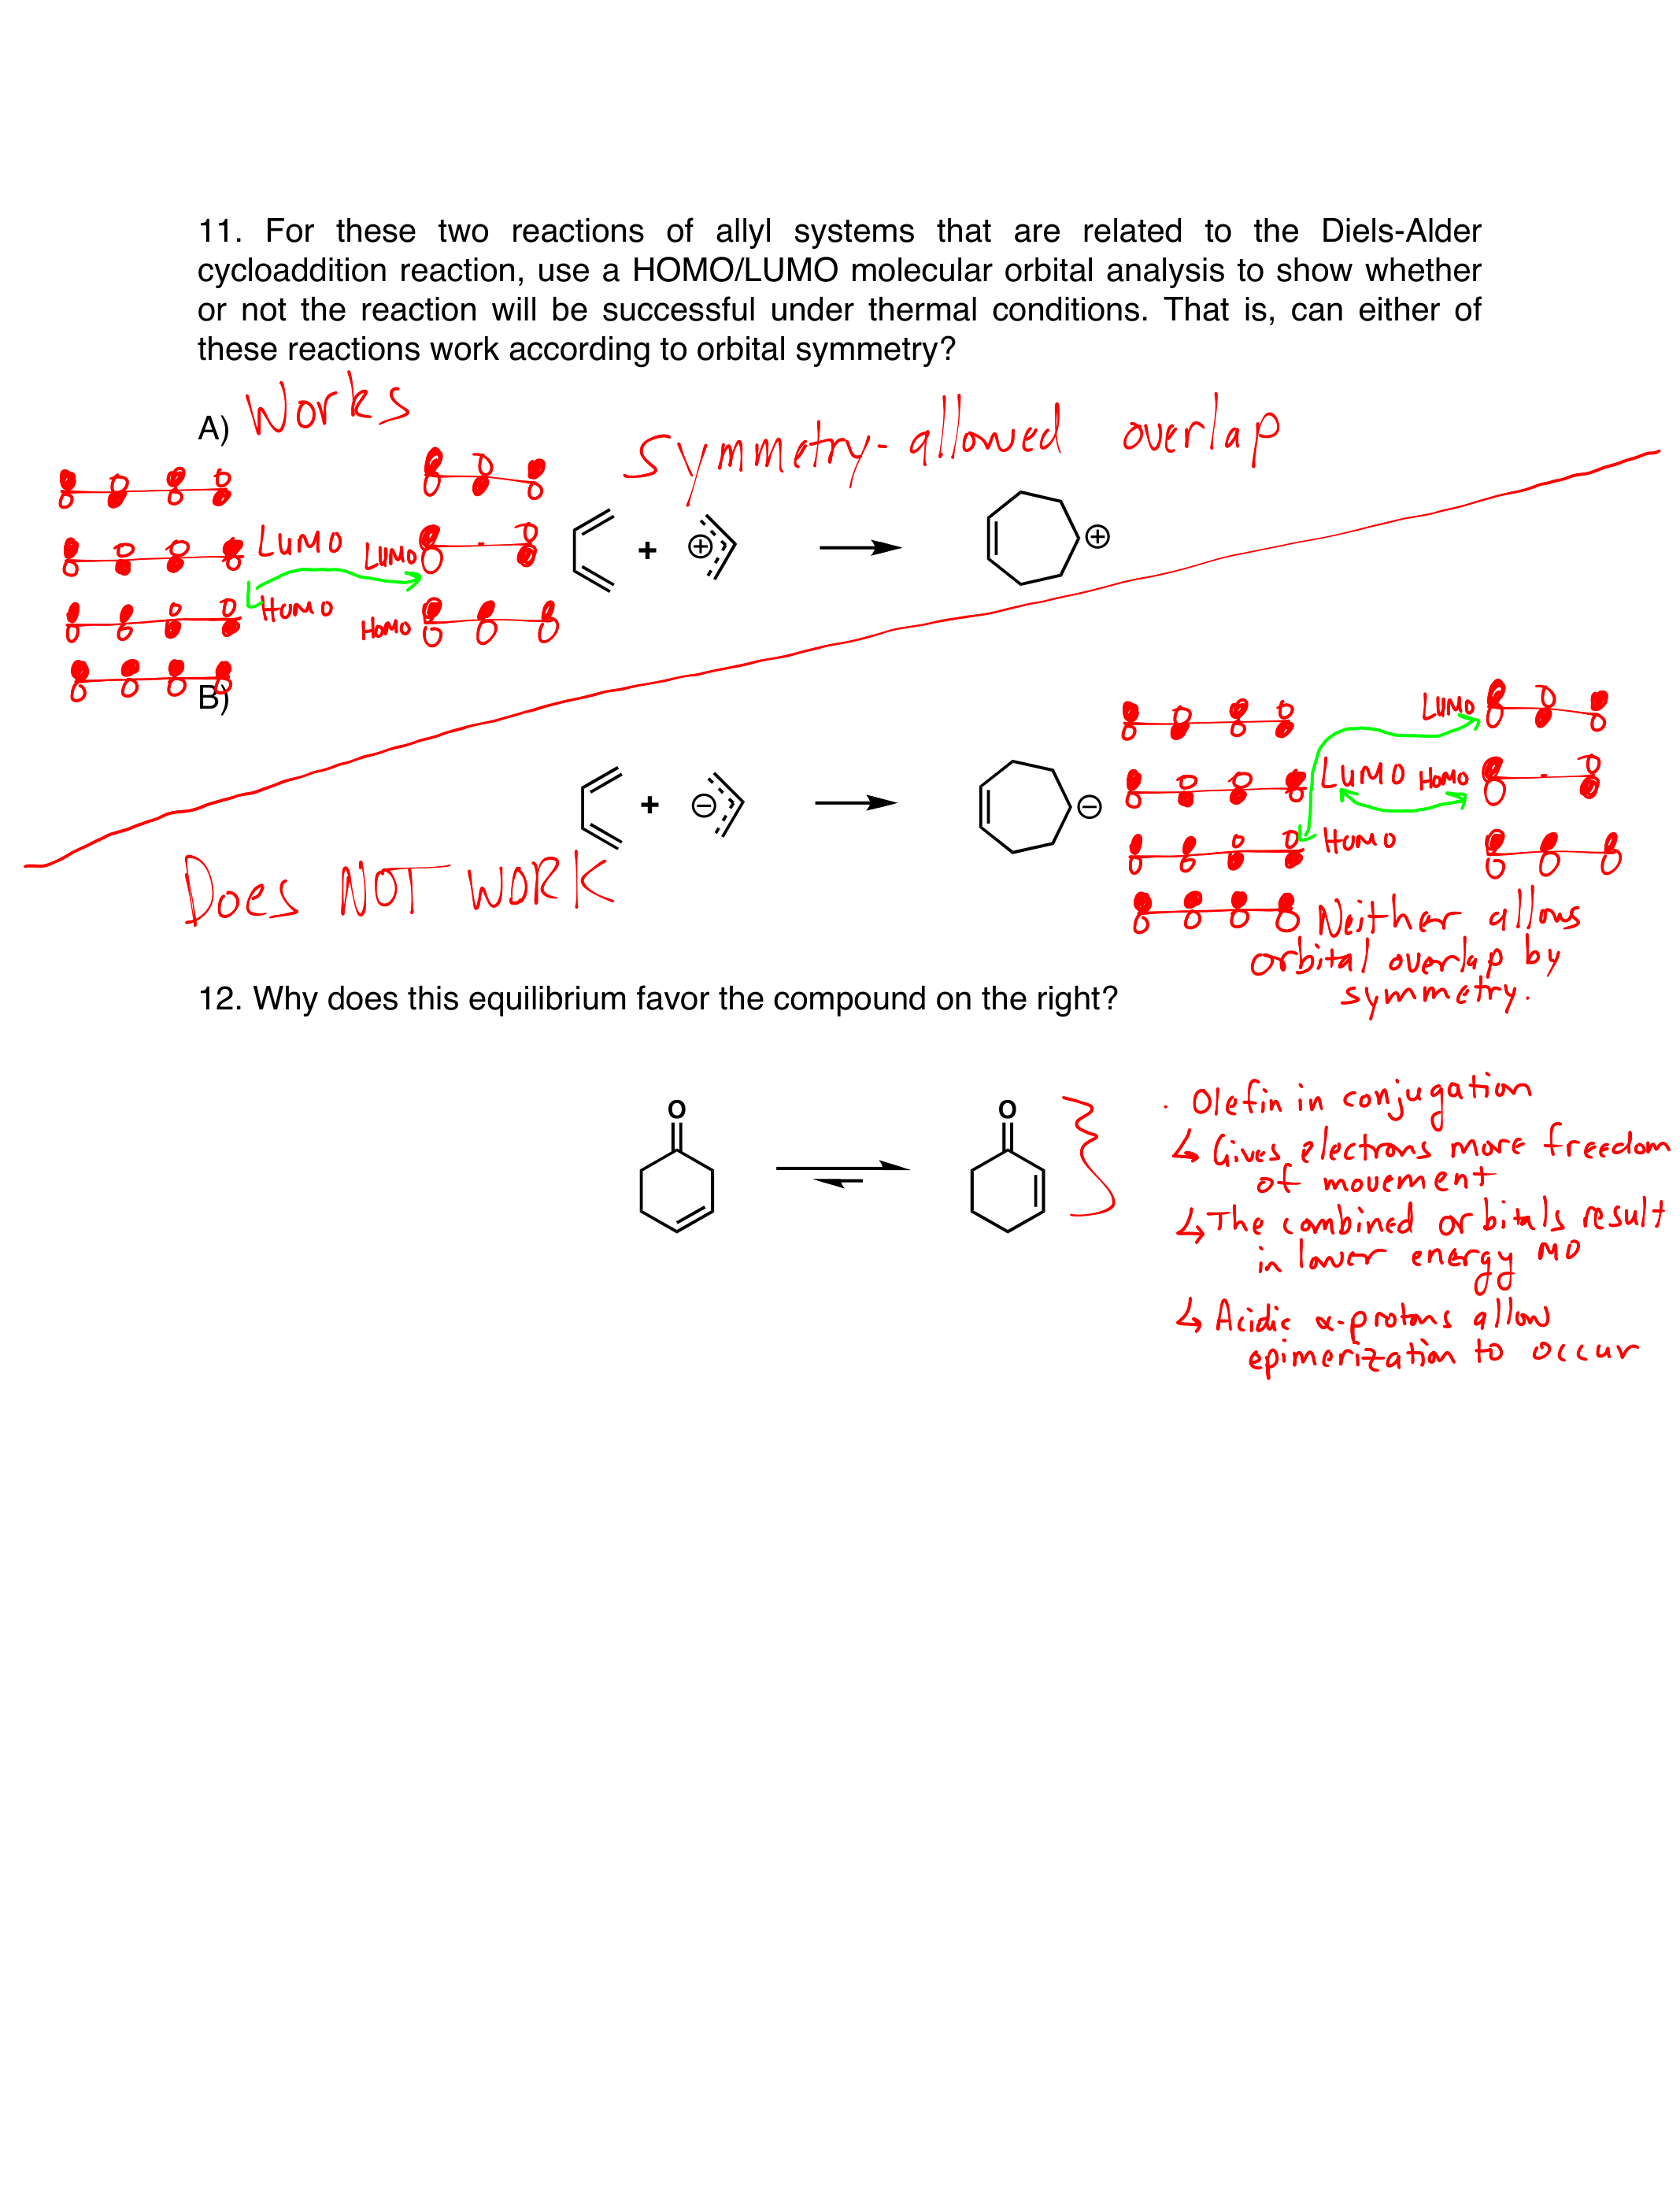 11. For these two reactions of allyl systems that are related to the Diels-Alder
cycloaddition reaction, use a HOMO/LUMO molecular orbital analysis to show whether
or not the reaction will be successful under thermal conditions. That is, can either of
these reactions work according to orbital symmetry?
A) Works
Symmetry-allowed overlap
LUMO
LUMO
HOMO
HOMO
+
⊕
⊕
B)
+
⊖
⊖
LUMO
LUMO
HOMO
HOMO
Does NOT WORK
Neither allows
orbital overlap by
symmetry.
12. Why does this equilibrium favor the compound on the right?
O
O
· Olefin in conjugation
↳ Gives electrons more freedom
of movement
↳ The combined orbitals result
in lower energy MO
↳ Acidic α-protons allow
epimerization to occur